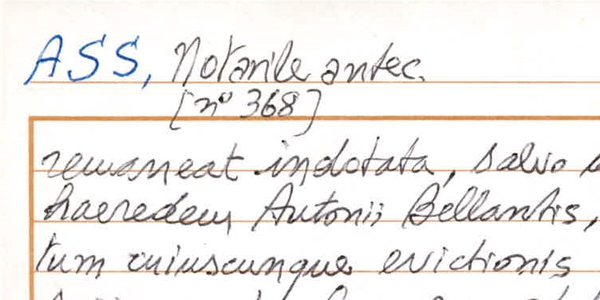 ASS, Notarile antec.
[nº 368]
remaneat indotata, salvo
haeredem Antonii Bellantis,
tum cuiuscunque evictionis